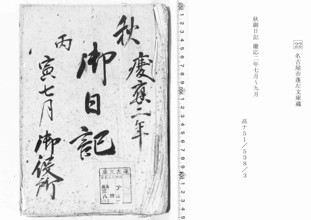 22 名古屋市蓬左文庫蔵
秋御日記 慶応二年七月〜九月
高ナ51/538/3
慶應二年
秋 御日記
丙寅七月 御役所